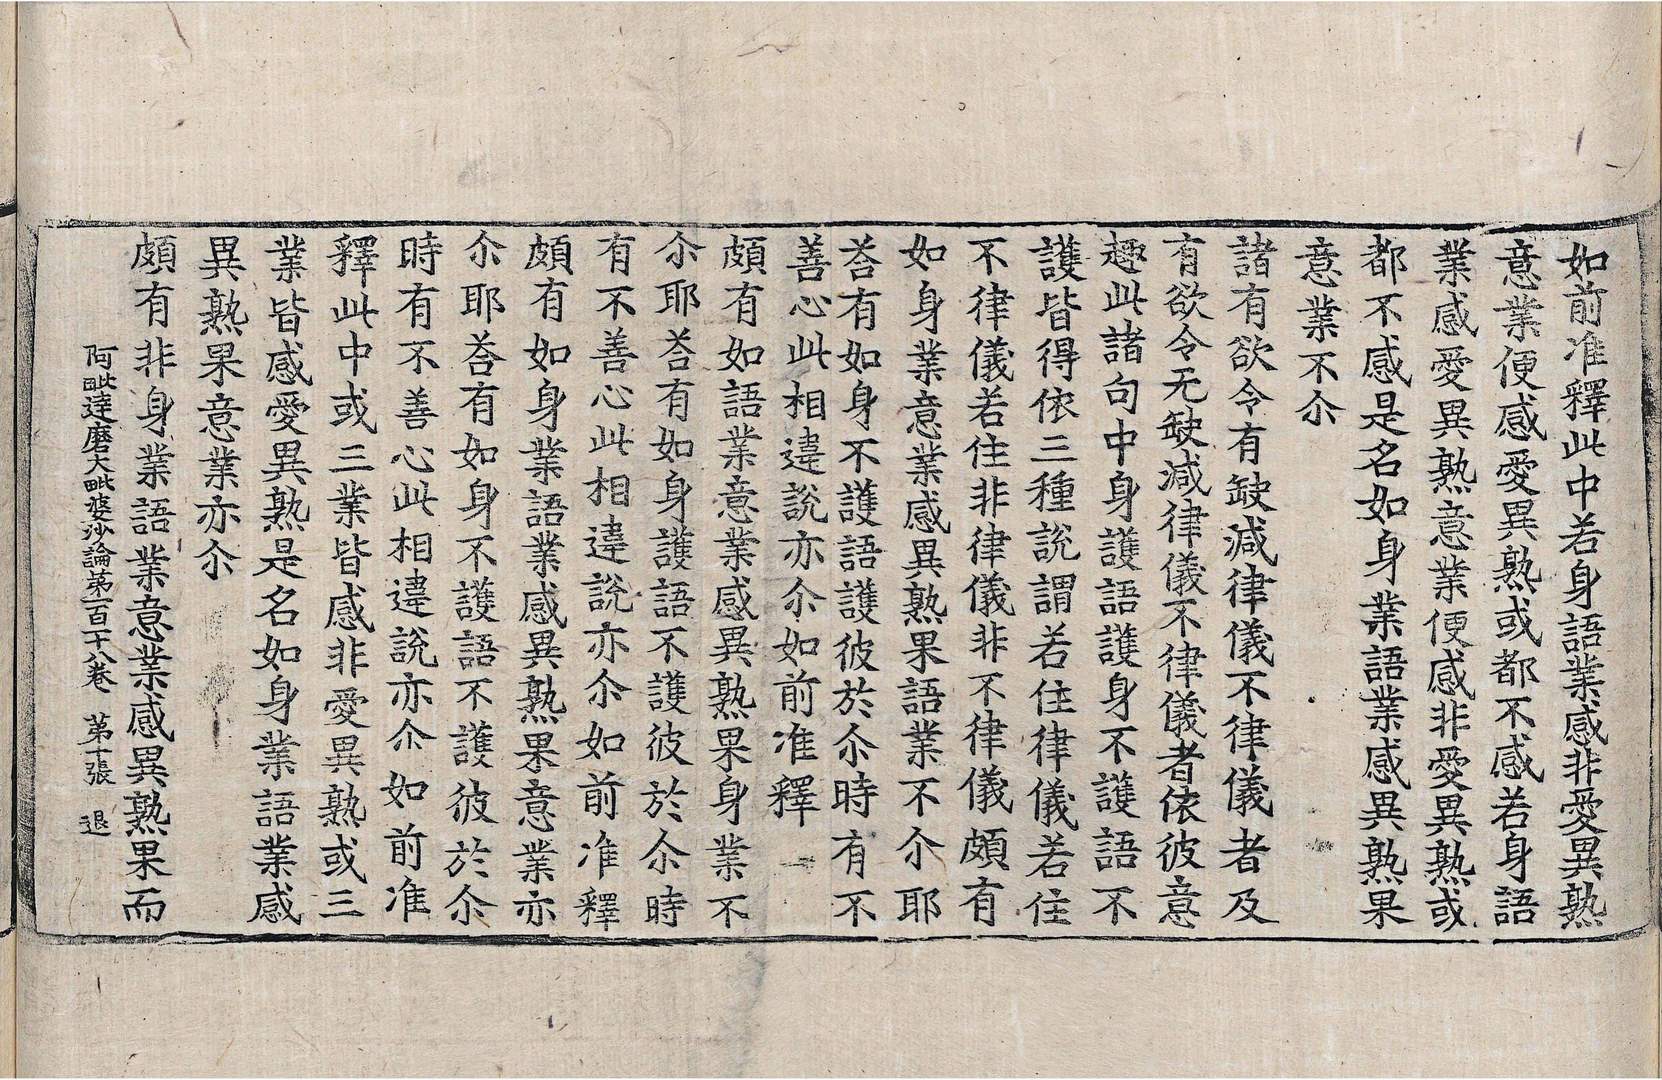 如前准釋此中若身語業感非愛異熟
意業便感愛異熟或都不感若身語
業感愛異熟意業便感非愛異熟或
都不感是名如身業語業感異熟果
意業不尒
諸有欲令有缺減律儀不律儀者及
有欲令无缺減律儀不律儀者依彼意
趣此諸句中身護語護身不護語不
護皆得依三種說謂若住律儀若住
不律儀若住非律儀非不律儀頗有
如身業意業感異熟果語業不尒耶
荅有如身不護語護彼於尒時有不
善心此相違說亦尒如前准釋
頗有如語業意業感異熟果身業不
尒耶荅有如身護語不護彼於尒時
有不善心此相違說亦尒如前准釋
頗有如身業語業感異熟果意業亦
尒耶荅有如身不護語不護彼於尒
時有不善心此相違說亦尒如前准
釋此中或三業皆感非愛異熟或三
業皆感愛異熟是名如身業語業感
異熟果意業亦尒
頗有非身業語業意業感異熟果而
阿毗達磨大毗婆沙論第一百一十八卷 第十張 退